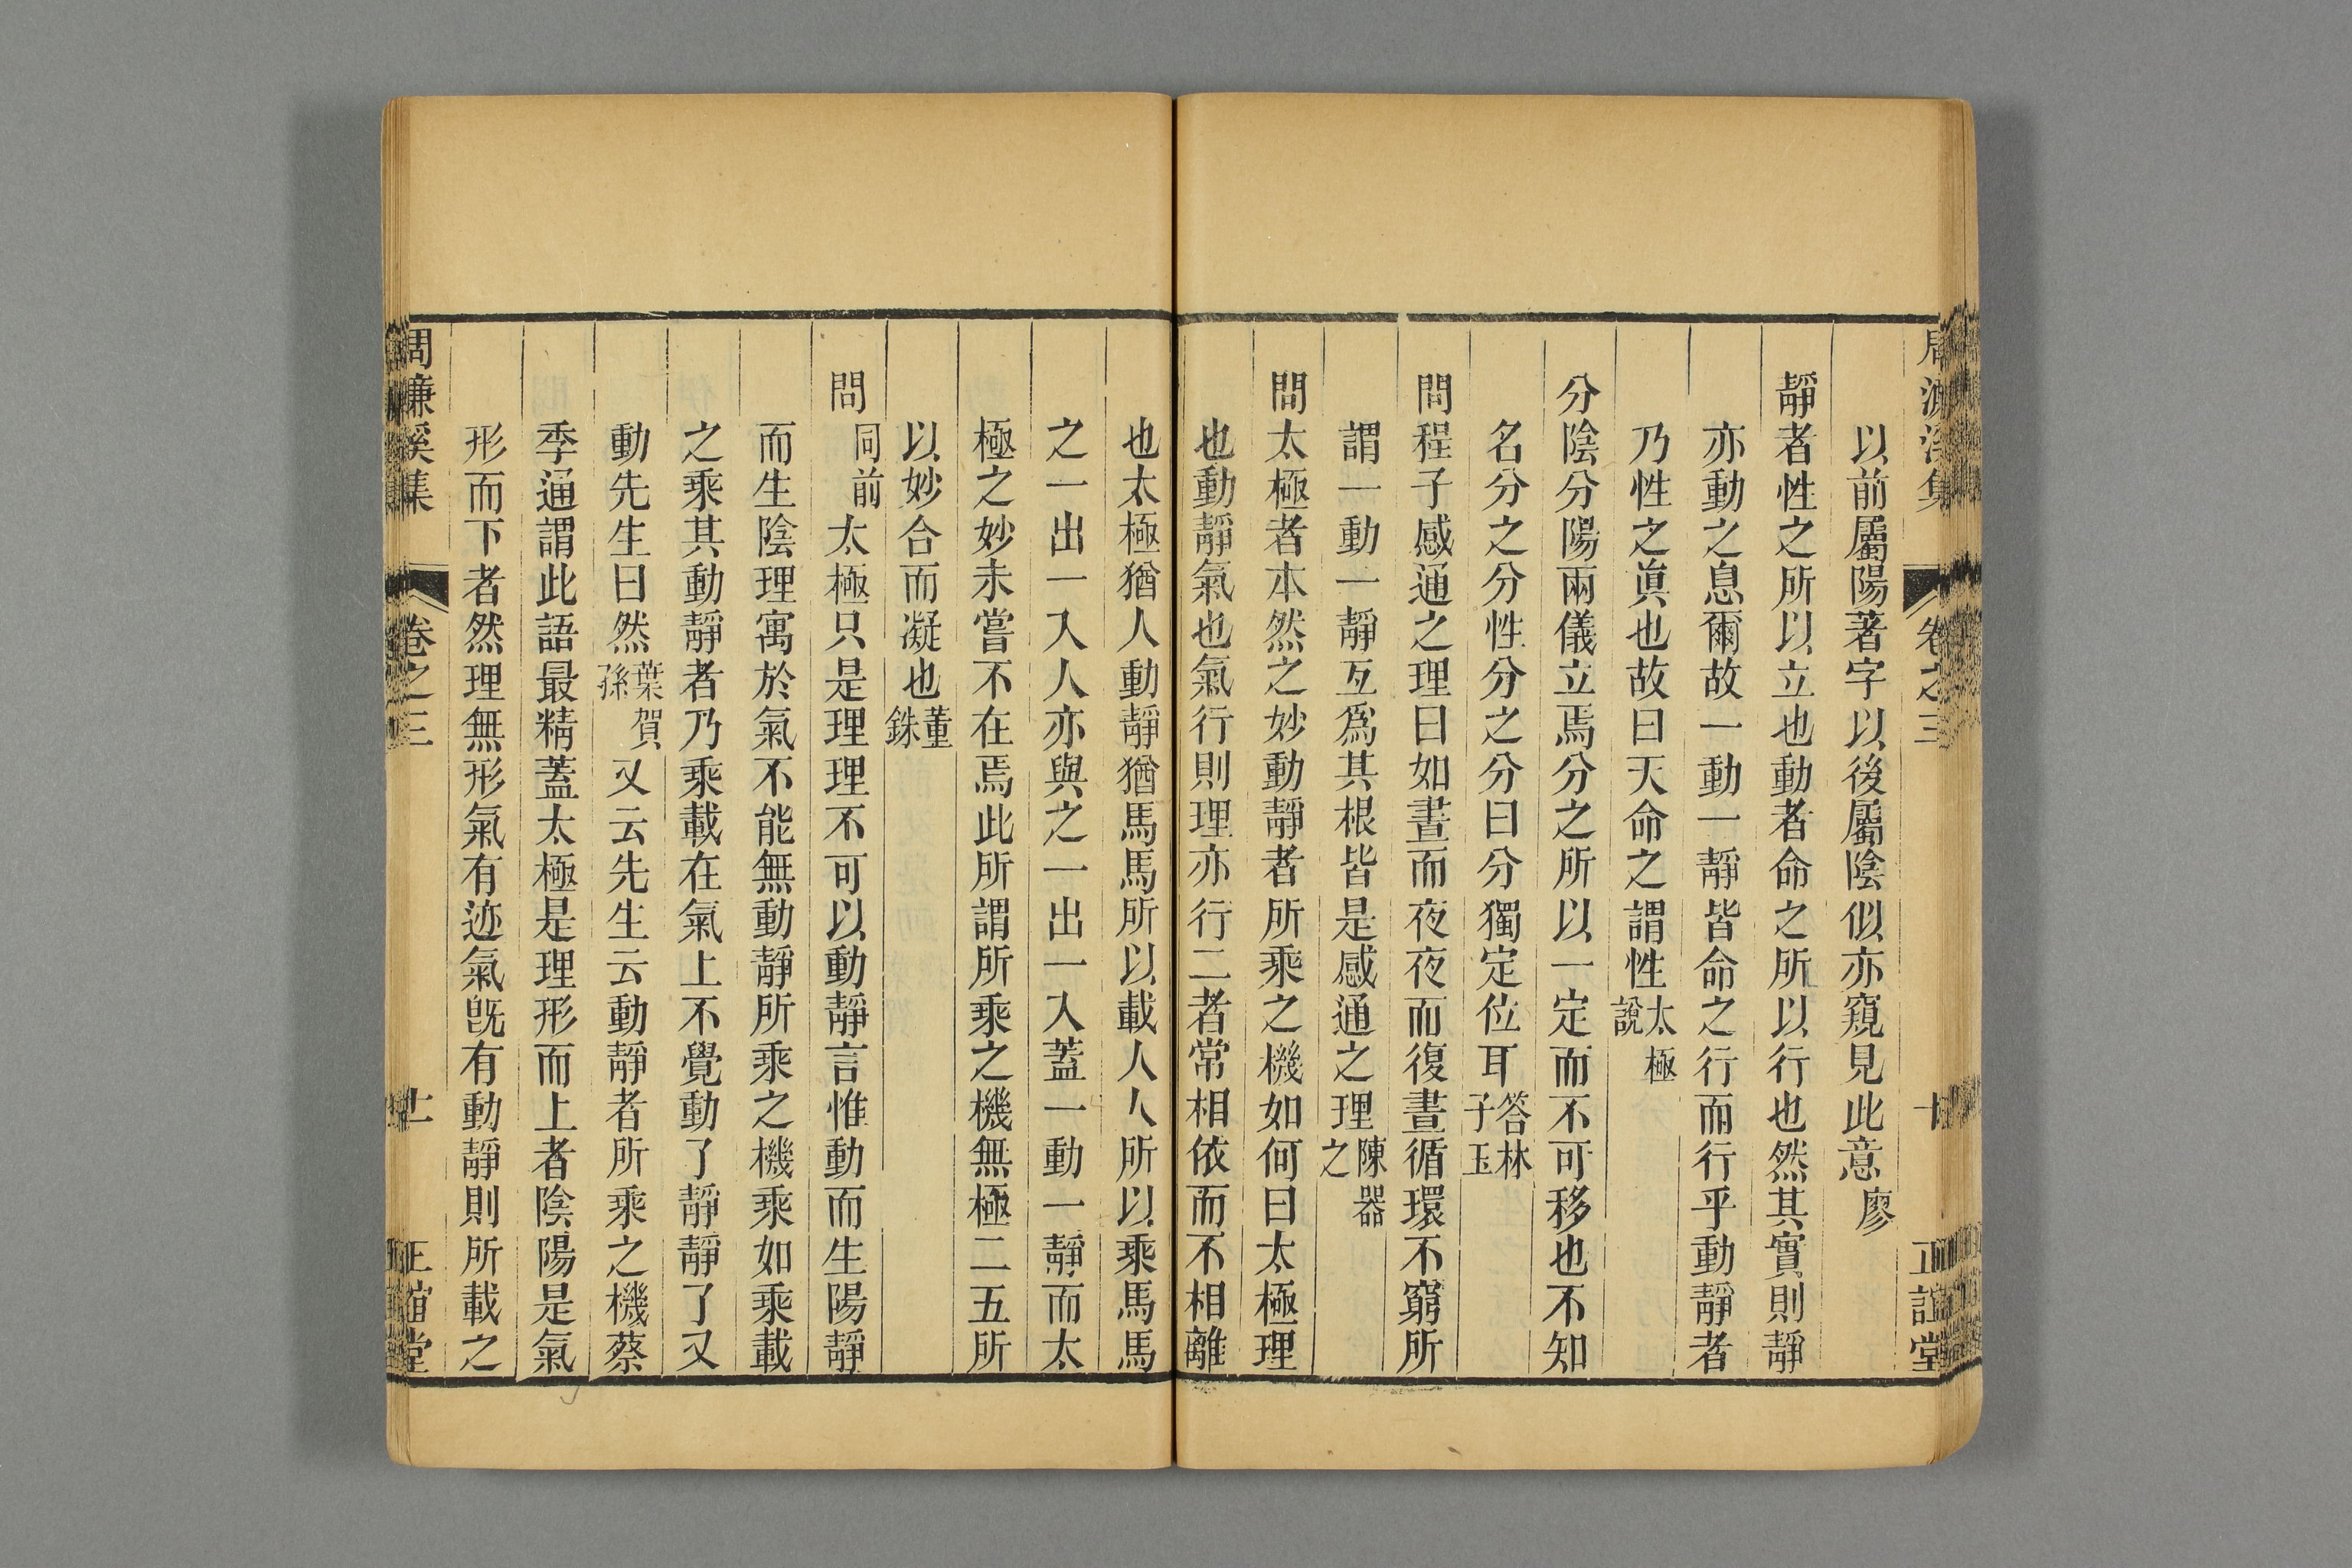 周濂溪集 卷之三 十 正誼堂
以前屬陽著字以後屬陰似亦窺見此意廖
靜者性之所以立也動者命之所以行也然其實則靜
亦動之息爾故一動一靜皆命之行而行乎動靜者
乃性之眞也故曰天命之謂性太極說
分陰分陽兩儀立焉分之所以一定而不可移也不知
名分之分性分之分曰分獨定位耳答林子玉
問程子感通之理曰如晝而夜夜而復晝循環不窮所
謂一動一靜互爲其根皆是感通之理陳器之
問太極者本然之妙動靜者所乘之機如何曰太極理
也動靜氣也氣行則理亦行二者常相依而不相離
也太極猶人動靜猶馬馬所以載人人所以乘馬馬
之一出一入人亦與之一出一入蓋一動一靜而太
極之妙未嘗不在焉此所謂所乘之機無極二五所
以妙合而凝也董銖
問同前太極只是理理不可以動靜言惟動而生陽靜
而生陰理寓於氣不能無動靜所乘之機乘如乘載
之乘其動靜者乃乘載在氣上不覺動了靜靜了又
動先生曰然葉賀孫又云先生云動靜者所乘之機蔡
季通謂此語最精蓋太極是理形而上者陰陽是氣
形而下者然理無形氣有迹氣旣有動靜則所載之
周濂溪集 卷之三 十一 正誼堂